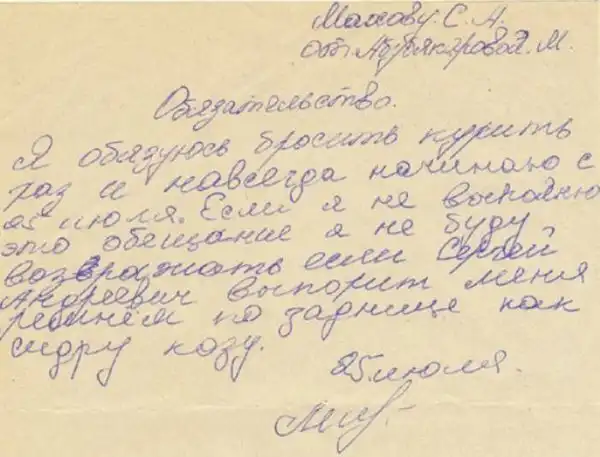 Махову С. А.
от Абубякяровой. М.
Обязательство.
Я обязуюсь бросить курить
раз и навсегда начинаю с
25 июля. Если я не выполню
это обещание я не буду
возвражать если Сергей
Андреевич выпорит меня
ремнём по заднице как
сидру козу.
25 июля.